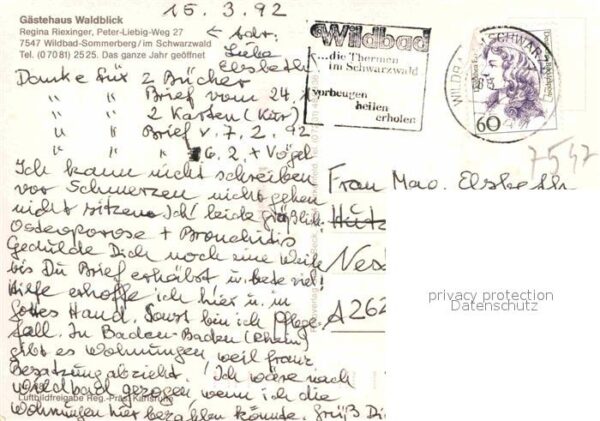 15. 3. 92
Gästehaus Waldblick
Regina Riexinger, Peter-Liebig-Weg 27
7547 Wildbad-Sommerberg / im Schwarzwald
Tel. (07081) 2525. Das ganze Jahr geöffnet
Adr.
Liebe
Elsbeth!
Danke für 2 Bücher
" " Brief vom 24.
" " 2 Karten (Kur)
" " Brief v. 7. 2. 92
" " 6. 2 + Vögel
Ich kann nicht schreiben
vor Schmerzen nicht gehen
nicht sitzen. Ich leide gräßlich
Osteoporose + Bronchitis
Gedulde Dich noch eine Weile
bis Du Brief erhälst u. bete viel!
Hilfe erhoffe ich hier u. in
Gottes Hand. Sonst bin ich Pflege
fall. In Baden-Baden (Rhein)
gibt es Wohnungen weil franz
Besatzung abzieht. Ich wäre nach
Wildbad gezogen wenn ich die
Luftbildfreigabe Reg.-Präs. Karlsruhe
Wohnungen hier bezahlen könnte. Grüß Di
Wildbad
...die Thermen
im Schwarzwald
vorbeugen
heilen
erholen
60
7547
Frau Mag. Elsbeth
A 262
privacy protection
Datenschutz